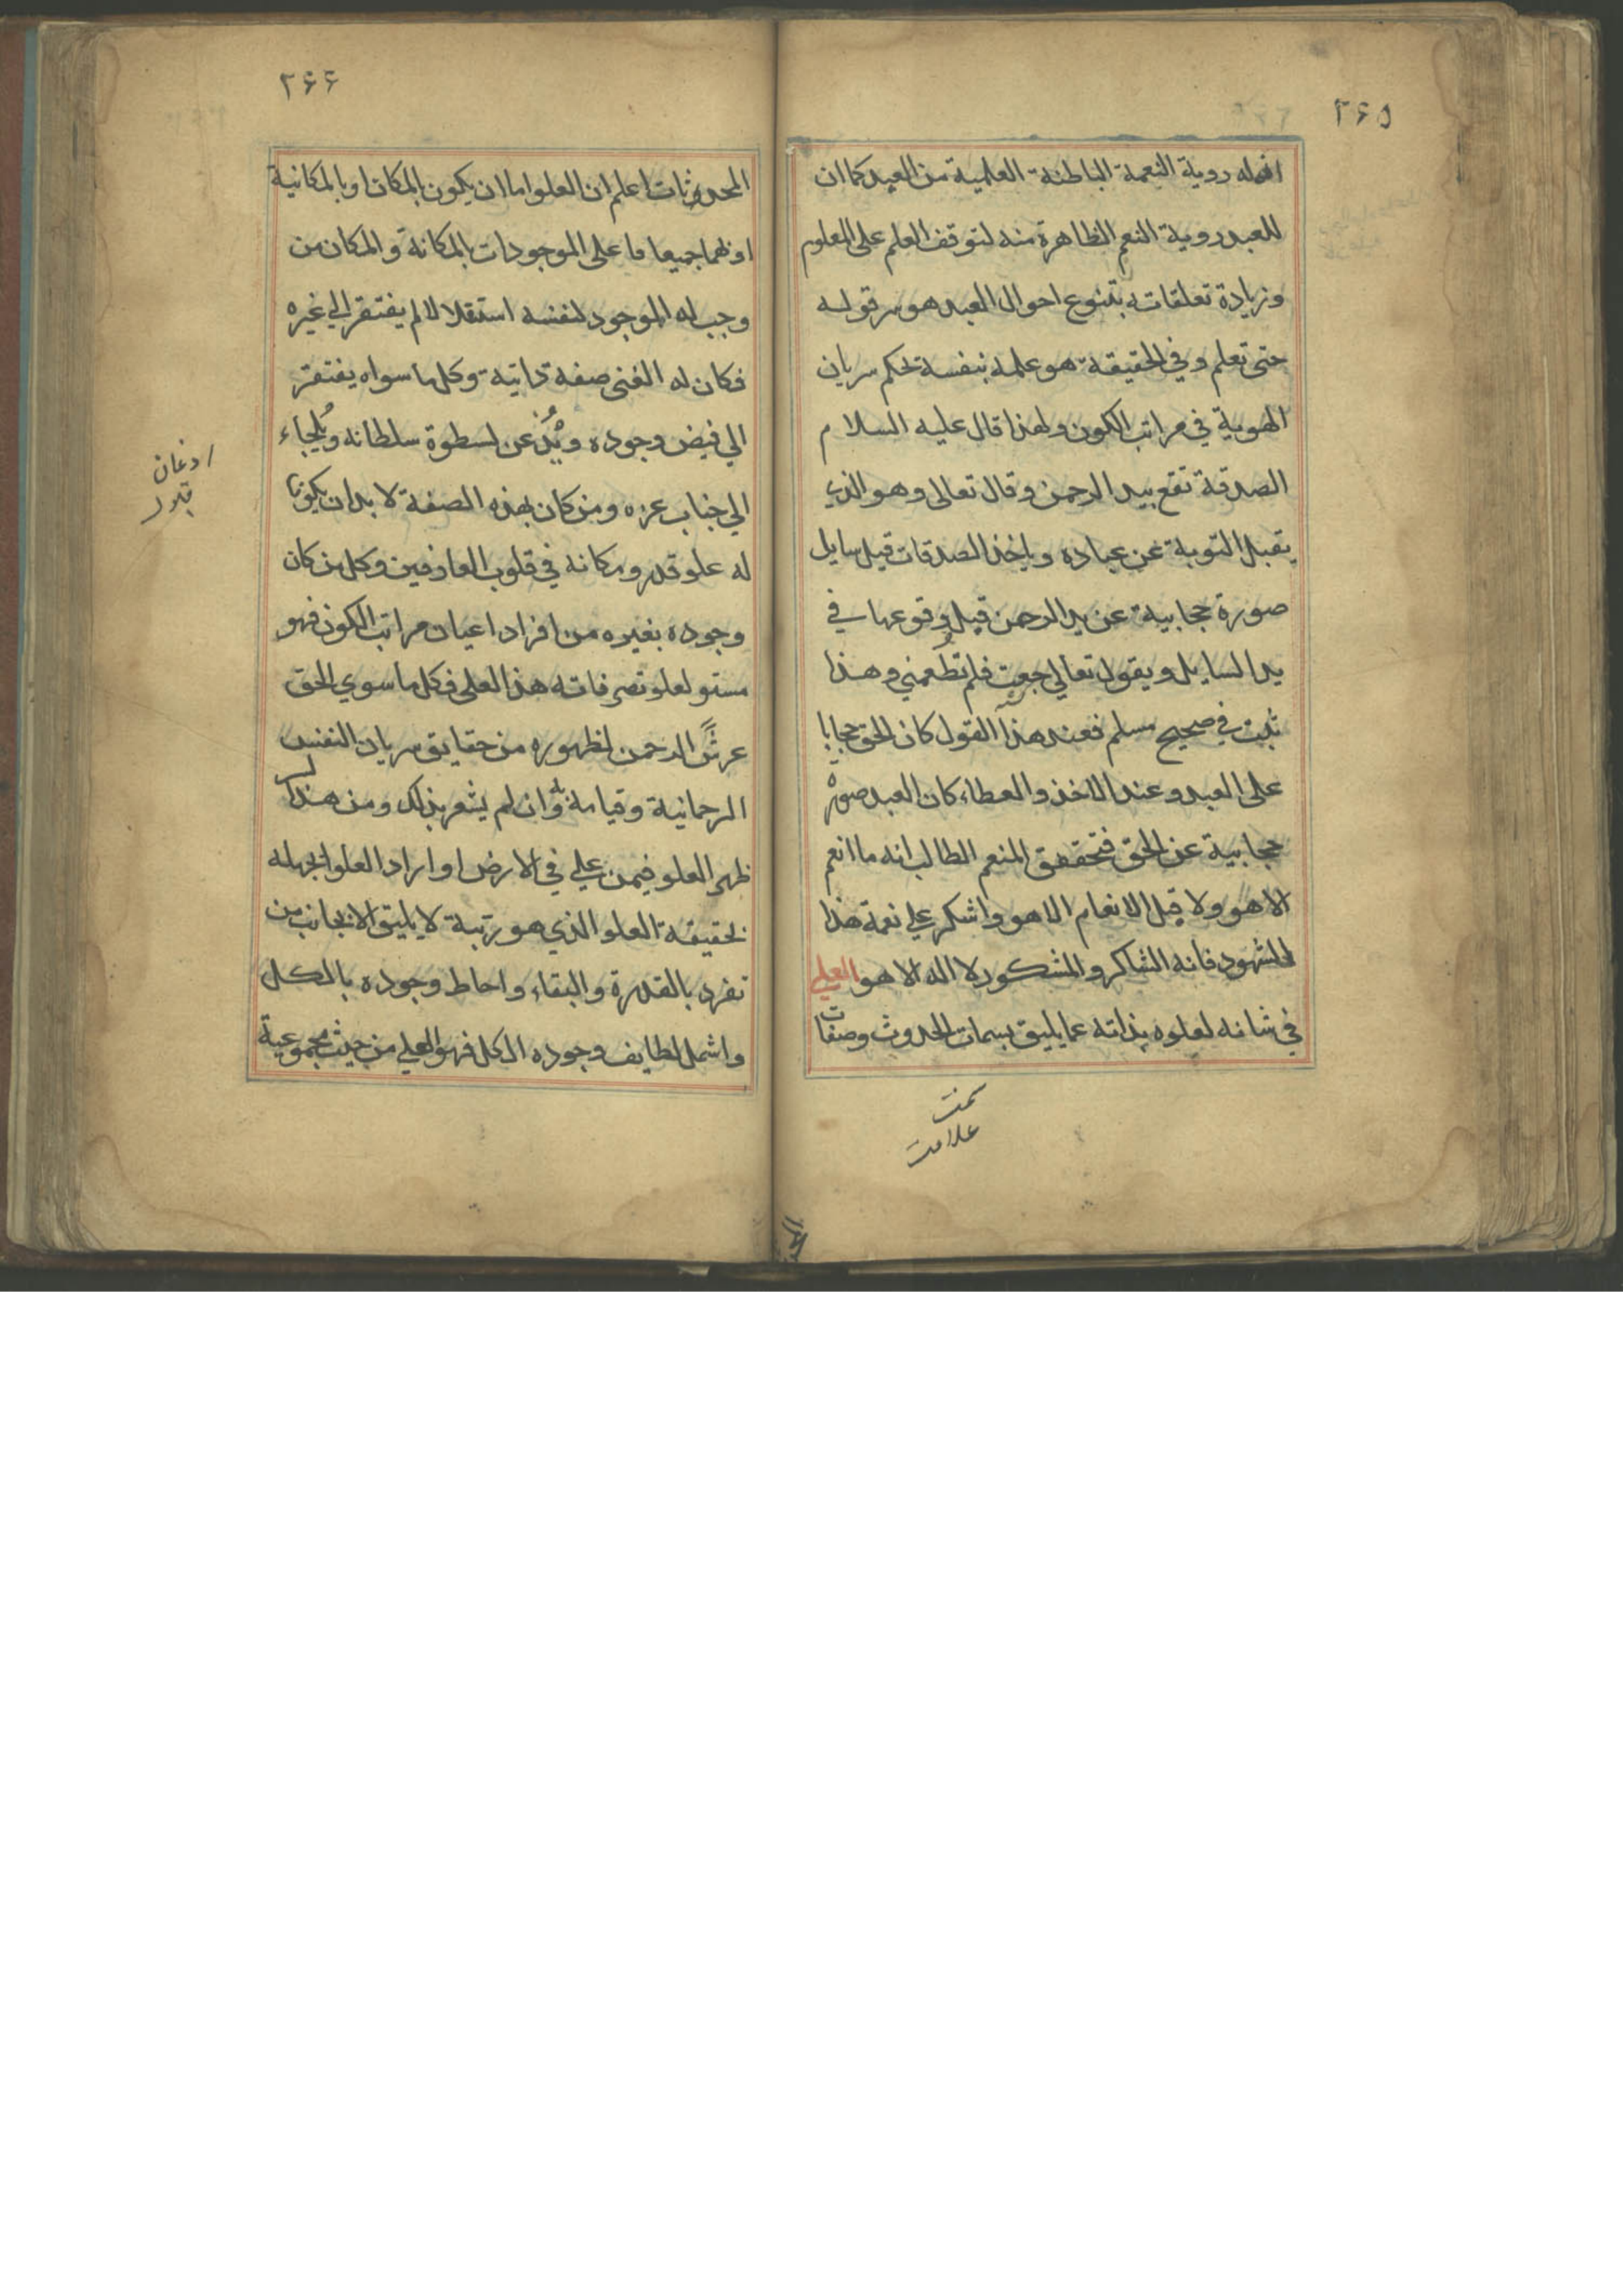 ۲۶۵
افعاله روية النعمة الباطنة العلمية من العبد كما ان
للعبد روية النعم الظاهرة منه لتوقف العلم على المعلوم
وزيادة تعلقاته بتنوع احوال العبد هو سر قوله
حتى نعلم وفي الحقيقة هو علمه بنفسه بحكم سريان
الهوية في مراتب الكون ولهذا قال عليه السلام
الصدقة تقع بيد الرحمن وقال تعالى وهو الذي
يقبل التوبة عن عباده وياخذ الصدقات قبل سايل
صورة حجابية عن يد الرحمن قبل وقوعها في
يد السايل ويقول تعالي جعت فلم تطعمني وهذا
ثبت في صحيح مسلم فعند هذا القول كان الحق حجابا
على العبد وعند الاخذ والعطاء كان العبد صورة
حجابية عن الحق فتحقق المنعم الطالب انه ما انعم
الا هو ولا قبل الانعام الا هو واشكر علي نعمة هذا
الشهود فانه الشاكر والمشكور لا اله الا هو العلي
في شانه لعلوه بذاته عما يليق بسمات الحدوث وصفات
سمت
علامت
۲۶۶
المحدثات اعلم ان العلو اما ان يكون بالمكان او بالمكانية
او بهما جميعا فاعلى الموجودات بالمكانة والمكان من
وجب له الموجود لنفسه استقلالا لم يفتقر الي غيره
فكان له الغنى صفة ذاتية وكل ما سواه يفتقر
الي فيض وجوده ويذعن لسطوة سلطانه ويلجاء
الي جناب عزه ومن كان بهذه الصفة لا بد ان يكون
له علو قدر ومكانة في قلوب العارفين وكل من كان
وجوده بغيره من افراد اعيان مراتب الكون فهو
مستو لعلو تصرفاته هذا العلى فكل ما سوي الحق
عرش الرحمن لظهوره من حقايق سريان النفس
الرحمانية وقيامه به وان لم يشعر بذلك ومن هذا السر
ظهر العلو فيمن علي في الارض او اراد العلو لجهله
بحقيقة العلو الذي هو رتبة لا يليق الا بجانب من
تفرد بالقدرة والبقاء واحاط وجوده بالكل
واشمل لطايف وجوده الكل فهو العلي من حيث مجموعية
اذعان